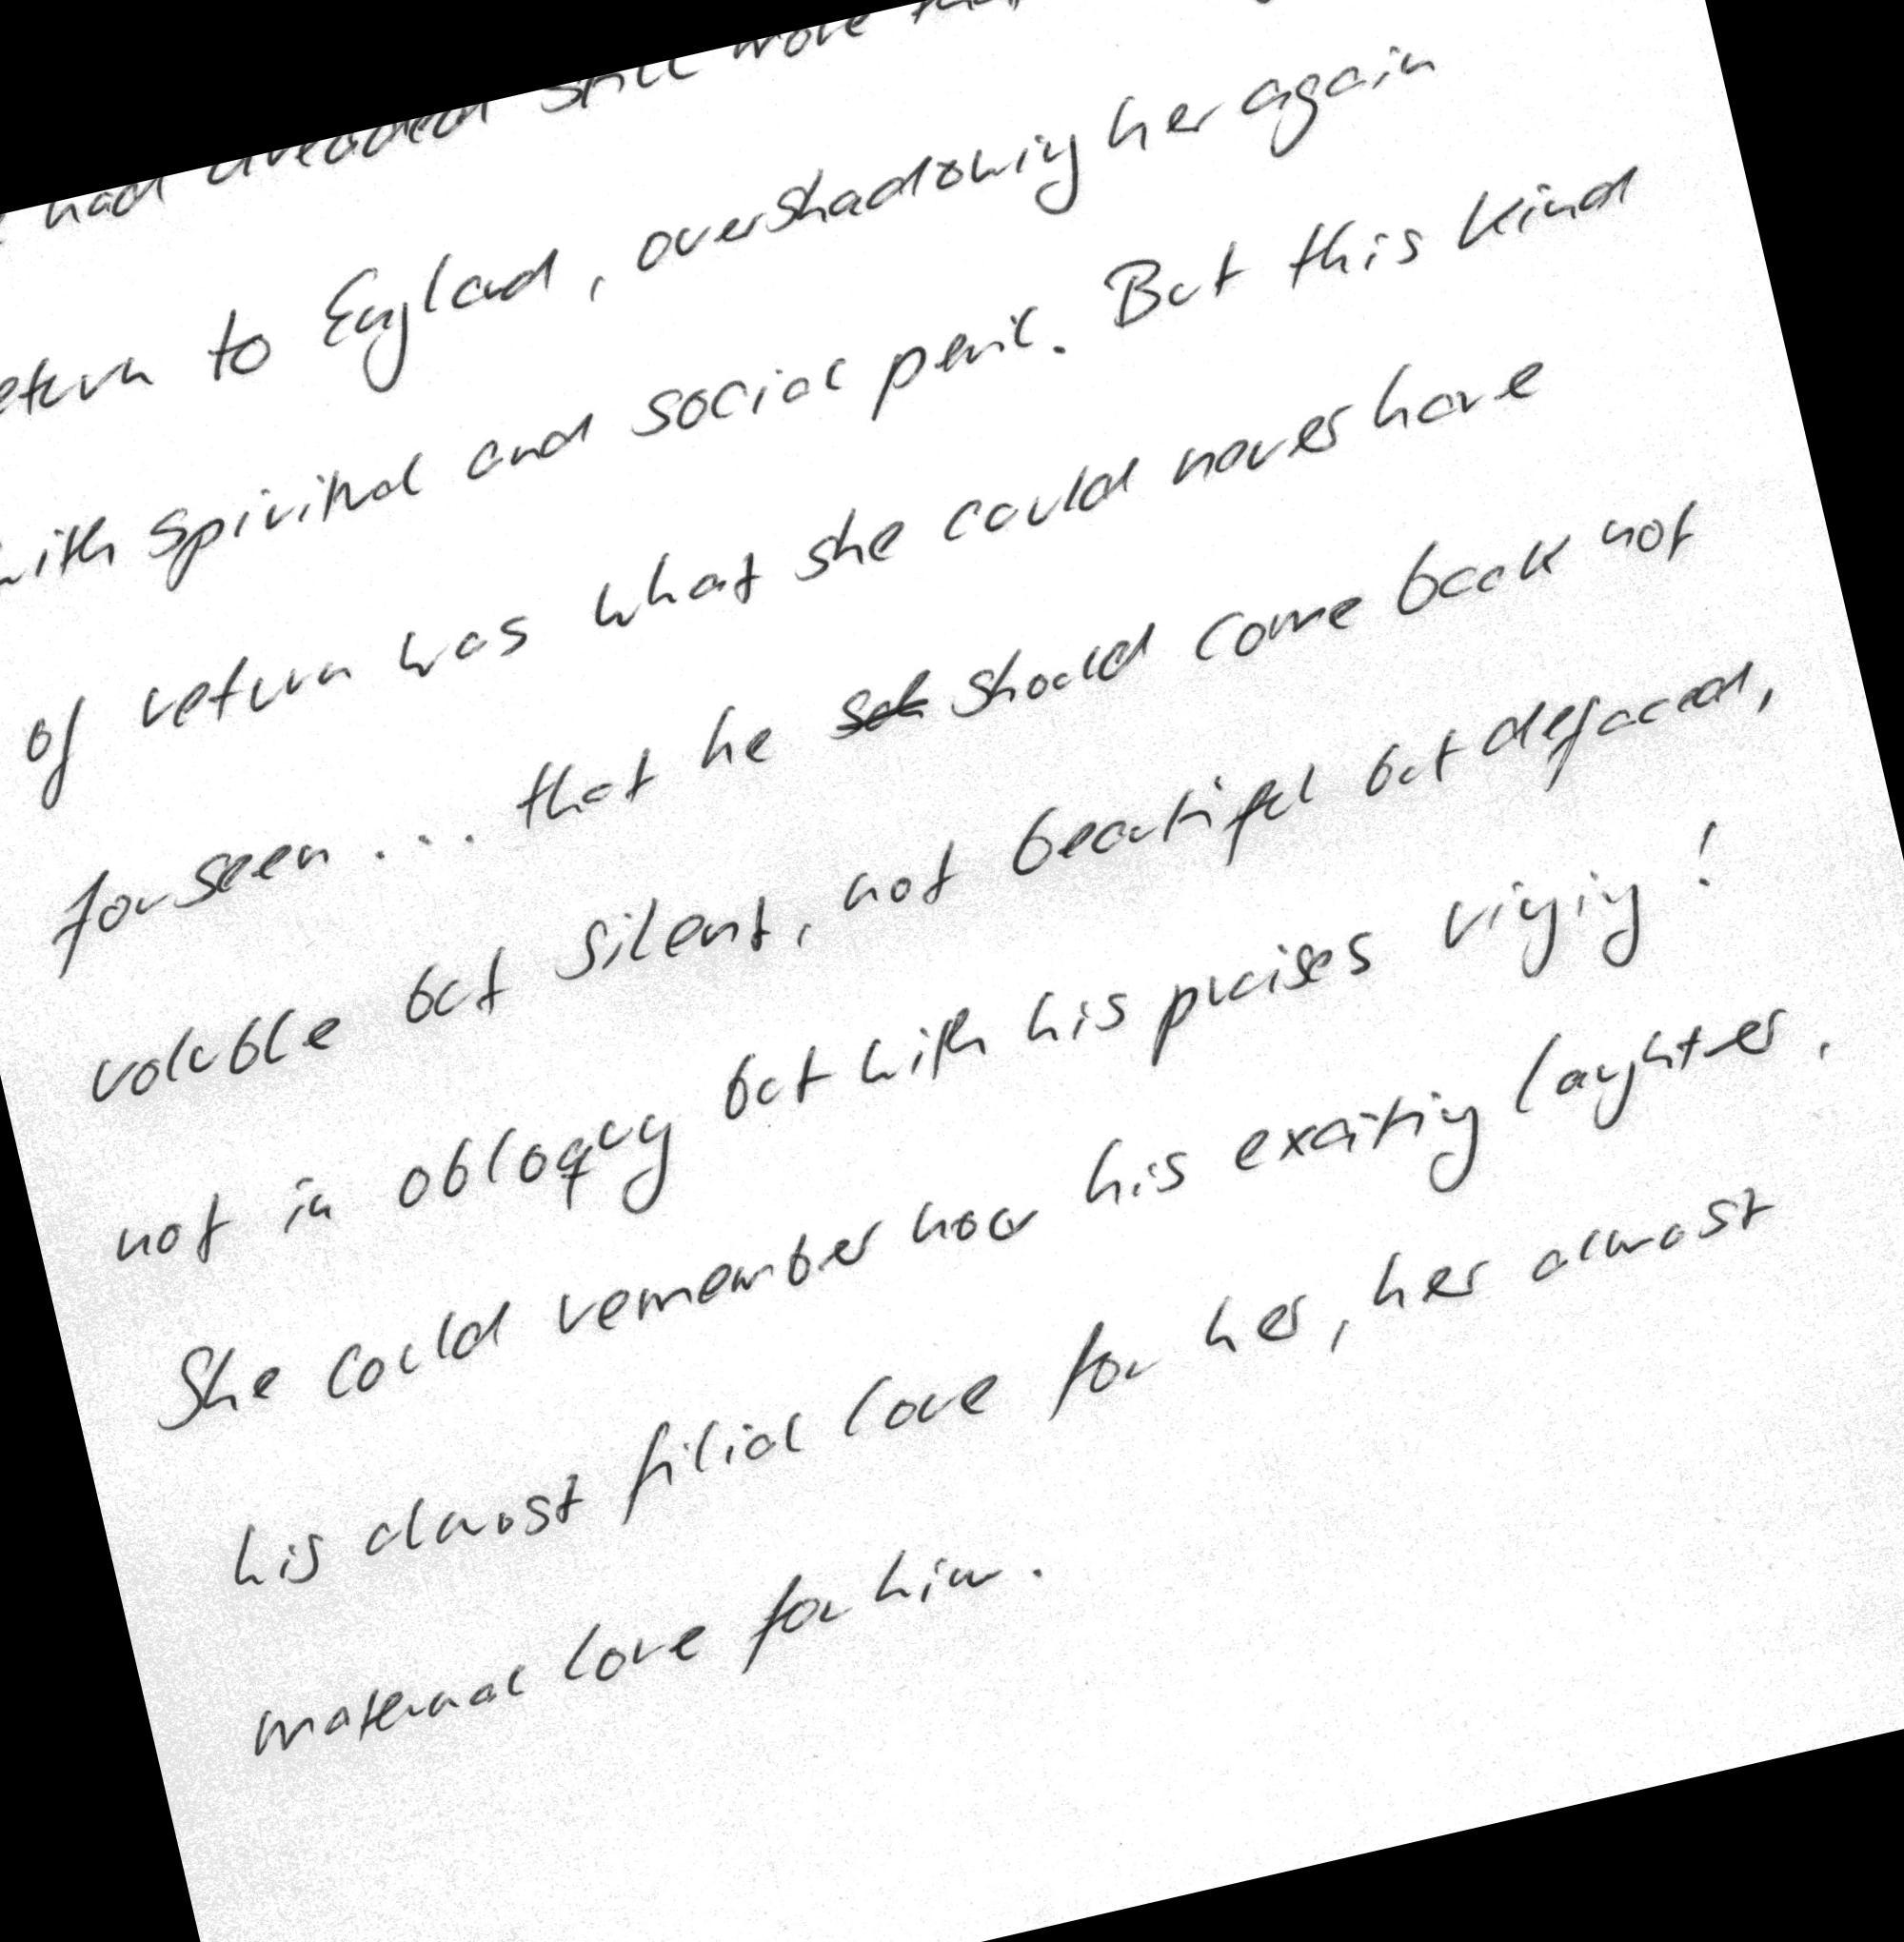 had dreaded still more
return to England, overshadowing her again
with spiritual and social peril. But this kind
of return was what she could never have
forseen ... that he should come back not
voluble but silent, not beautiful but defaced,
not in obloquy but with his praises ringing!
She could remember now his exciting laughter,
his almost filial love for her, her almost
maternal love for him.